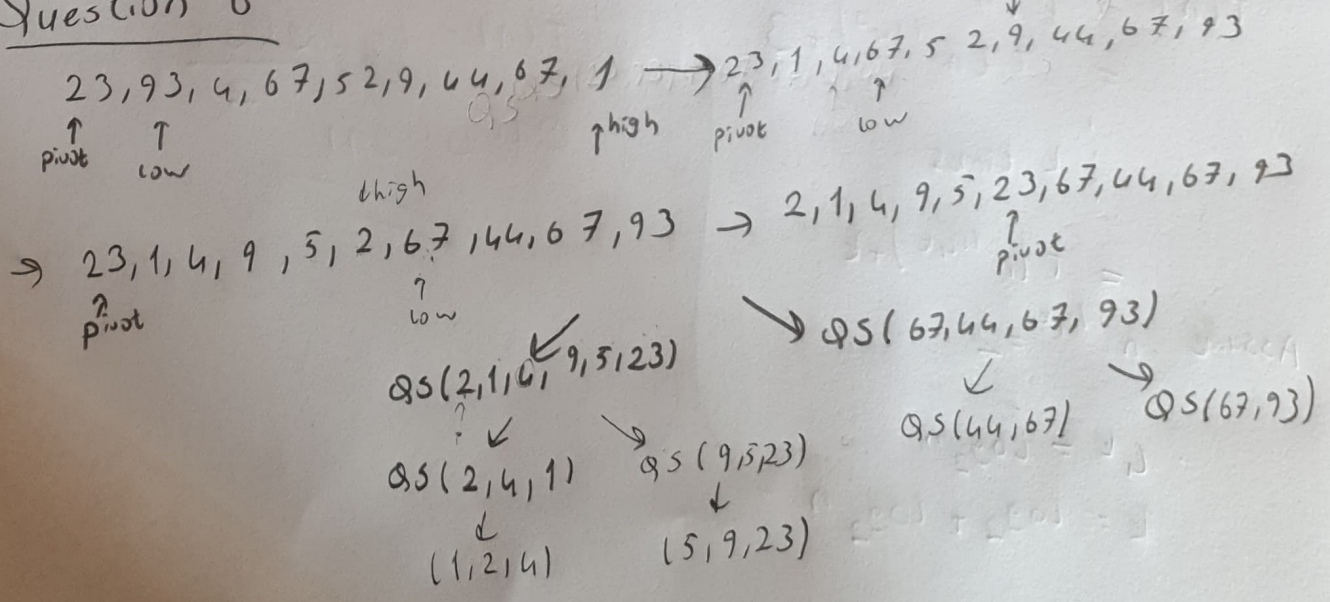 Question 6
23, 93, 4, 67, 5 2, 9, 44, 67, 1 → 23, 1, 4, 67, 5 2, 9, 44, 67, 93
↑ pivot ↑ low ↑ high ↑ pivot ↑ low
↓ high
→ 23, 1, 4, 9, 5, 2, 67, 44, 67, 93 → 2, 1, 4, 9, 5, 23, 67, 44, 67, 93
↑ pivot ↑ low ↑ pivot
QS(2, 1, 4, 9, 5, 23) QS(67, 44, 67, 93)
QS(44, 67) QS(67, 93)
QS(2, 4, 1) QS(9, 5, 23)
(1, 2, 4) (5, 9, 23)